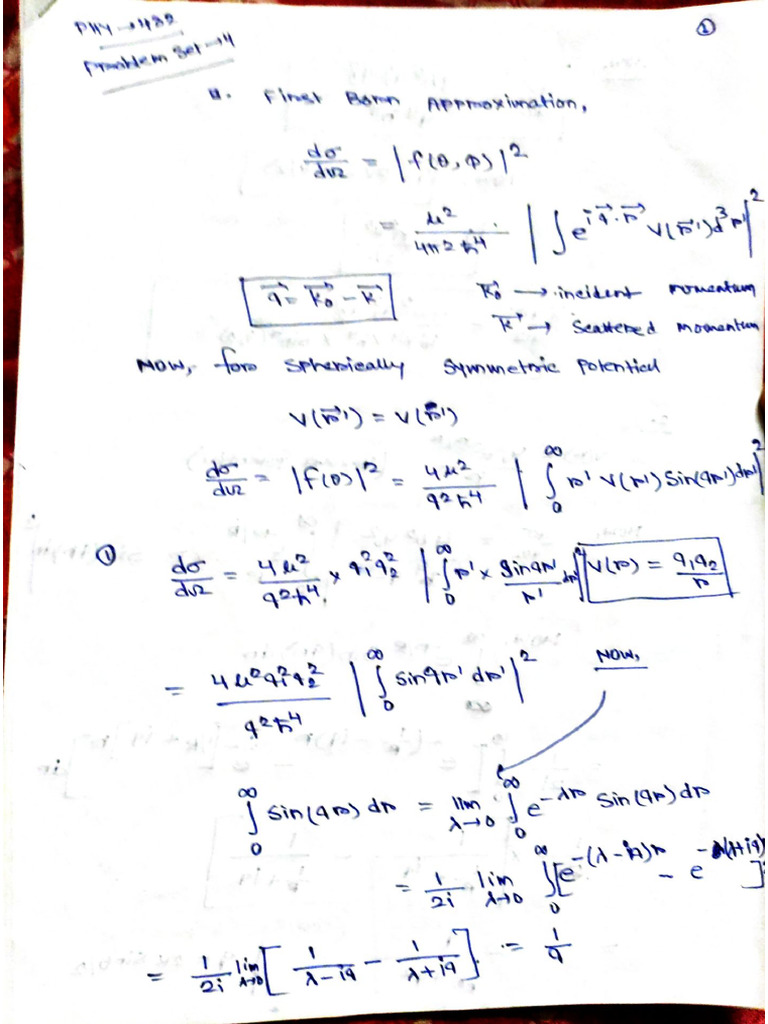 PHY → 482
Problem Set → 4
①
1. First Born Approximation,
dσ/dΩ = |f(θ, φ)|²
= μ²/(4π²ħ⁴) |∫ e^{i q⃗·r⃗'} V(r⃗') d³r'|²
q⃗ = k⃗₀ − k⃗
k⃗₀ → incident momentum
k⃗ → Scattered momentum
Now, for spherically symmetric potential
V(r⃗') = V(r')
dσ/dΩ = |f(θ)|² = 4μ²/(q²ħ⁴) |∫₀^∞ r' V(r') sin(qr') dr'|²
① dσ/dΩ = 4μ²/(q²ħ⁴) × q₁²q₂² |∫₀^∞ r' × sin qr'/r' dr'|² V(r) = q₁q₂/r
= 4μ²q₁²q₂²/(q²ħ⁴) |∫₀^∞ sin qr' dr'|² Now,
∫₀^∞ sin(qr) dr = lim_{λ→0} ∫₀^∞ e^{−λr} sin(qr) dr
= 1/2i lim_{λ→0} ∫₀^∞ [e^{−(λ−iq)r} − e^{−(λ+iq)r}]
= 1/2i lim_{λ→0} [1/(λ−iq) − 1/(λ+iq)] = 1/q